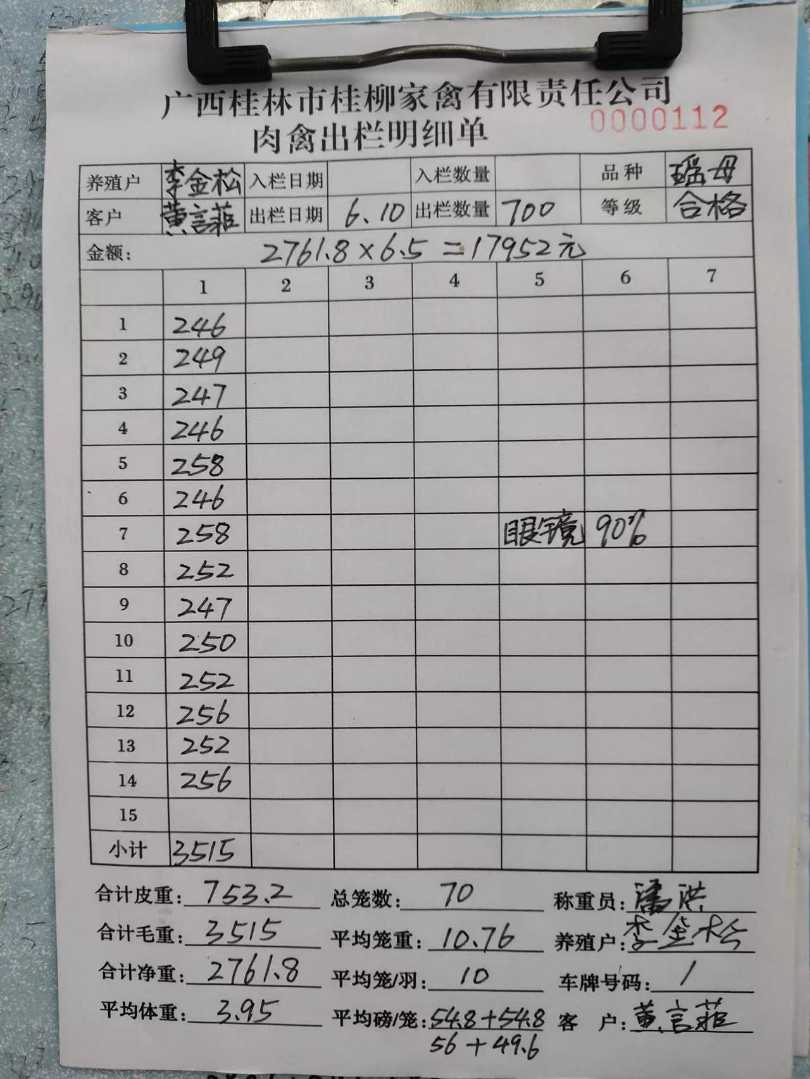 广西桂林市桂柳家禽有限责任公司
肉禽出栏明细单 0000112
养殖户 李金松 入栏日期 入栏数量 品种 瑶母
客户 黄言菲 出栏日期 6.10 出栏数量 700 等级 合格
金额: 2761.8×6.5=17952元
1 2 3 4 5 6 7
1 246
2 249
3 247
4 246
5 258
6 246
7 258 眼镜 90%
8 252
9 247
10 250
11 252
12 256
13 252
14 256
15
小计 3515
合计皮重: 753.2 总笼数: 70 称重员: 潘洪
合计毛重: 3515 平均笼重: 10.76 养殖户: 李金松
合计净重: 2761.8 平均笼/羽: 10 车牌号码: /
平均体重: 3.95 平均磅/笼: 54.8+54.8 客 户: 黄言菲
56+49.6